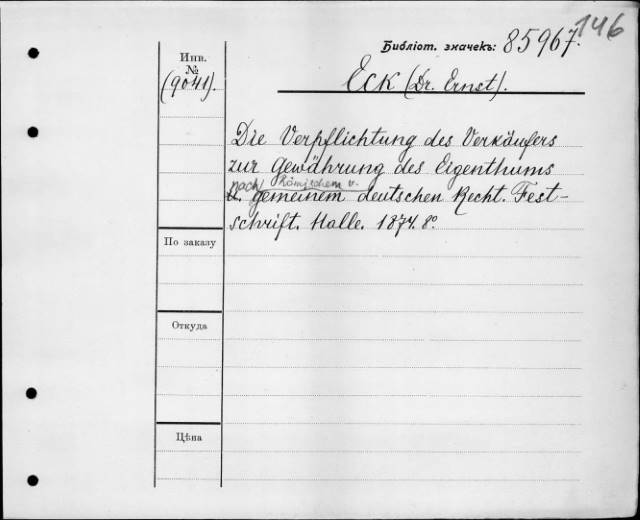 146
Библіот. значекъ: 85967.
Инв.
№
(9041).
Eck (Dr. Ernst).
Die Verpflichtung des Verkäufers
zur Gewährung des Eigenthums
nach Römischem u.
gemeinem deutschen Recht. Fest-
schrift. Halle. 1874. 8º.
По заказу
Откуда
Цѣна